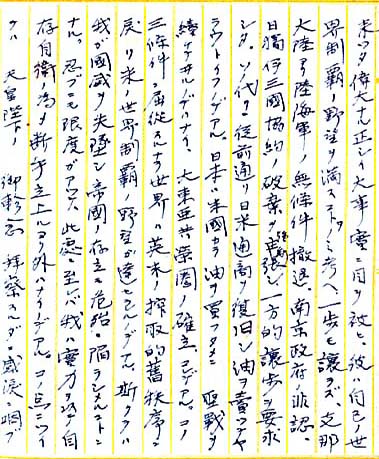 来ツタ偉大ナ正シイ大事実ニ目ヲ被ヒ、彼ハ自己ノ世
界制覇ノ野望ヲ満ストノミ考ヘ、一歩モ譲ラズ、支那
大陸ヨリ陸海軍ノ無条件撤退、南京政府ノ非認、
日獨伊三國協約ノ破棄ヲ主張シ一方的譲歩ヲ要求
シタ。ソノ代リ従前通リ日米通商ヲ復旧シ油ヲ賣ツテヤ
ラウトイフノデアル。日本ハ米國カラ油ヲ買フタメニ聖戦ヲ
續ケテヰルノデハナイ、大東亜共榮圏ノ確立ノタメデアル。コノ
三條件ニ屈從スルナラ世界ハ英米ノ搾取的舊秩序ニ
戻リ米ノ世界制覇ノ野望ガ達セラルルノデアル。斯クテハ
我ガ國威ヲ失墜シ、帝國ノ存立モ危殆ニ陥ラシメルコトニ
ナル。忍ブニモ限度ガアツテ、此處ニ至レバ我ハ實力ヲ以テ自
存自衛ノ為メ断乎立上ルヨリ外ハナイノデアル。コノ点ニツイ
テハ 天皇陛下ノ 御軫念ヲ拝察スルダニ感涙ニ咽ブ